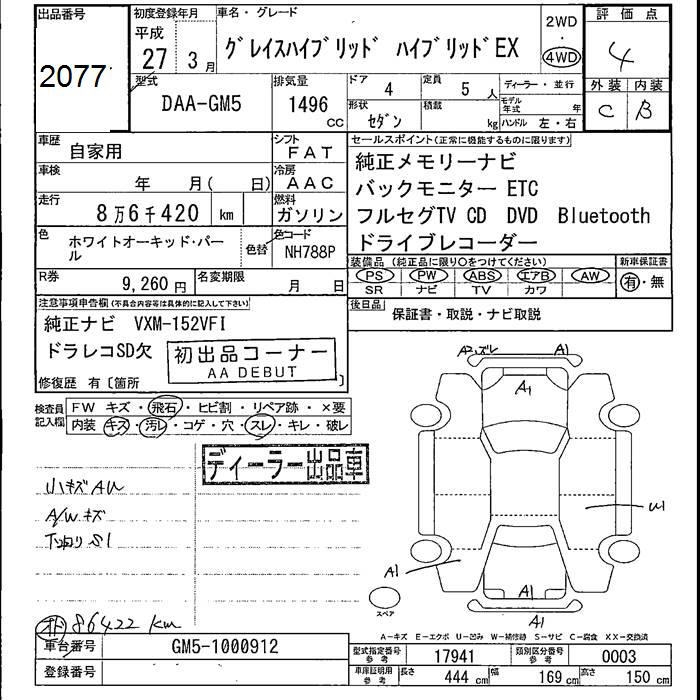 出品番号
2077
初度登録年月
平成
27年 3月
車名・グレード
グレイスハイブリッド ハイブリッドEX
2WD
・
4WD
評価点
4
型式
DAA-GM5
排気量
1496
CC
ドア
4
定員
5 人
形状
セダン
積載
kg
ディーラー・並行
モデル年式 年
ハンドル 左・右
外装 内装
C B
車歴
自家用
シフト
FAT
車検
年 月( 日)
冷房
AAC
走行
8万6千420 km
燃料
ガソリン
色
ホワイトオーキッド・パール
色替
色コード
NH788P
R券
9,260円
名変期限
月 日
セールスポイント(正常に機能するものに限ります)
純正メモリーナビ
バックモニター ETC
フルセグTV CD DVD Bluetooth
ドライブレコーダー
装備品 (純正品に限り○をつけてください)
PS PW ABS エアB AW
SR ナビ TV カワ
新車保証書
有・無
後日品
保証書・取説・ナビ取説
注意事項申告欄(不具合内容等は具体的に記入して下さい)
純正ナビ VXM-152VFI
ドラレコSD欠
初出品コーナー
AA DEBUT
修復歴 有〔箇所 〕
検査員記入欄
FW キズ・飛石・ヒビ割・リペア跡・×要
内装 キズ・汚レ・コゲ・穴・スレ・キレ・破レ
ディーラー出品車
小キズ AU
A/W キズ
下回り S1
86422 km
A2ズレ A1
A1
U1
A1
A1
A1
スペア
A-キズ E-エクボ U-凹み W-補修跡 S-サビ C-腐食 XX-交換済
車台番号
GM5-1000912
登録番号
型式指定番号
参考
17941
類別区分番号
参考
0003
車庫証明用
参考
長さ 444 cm
幅 169 cm
高さ 150 cm